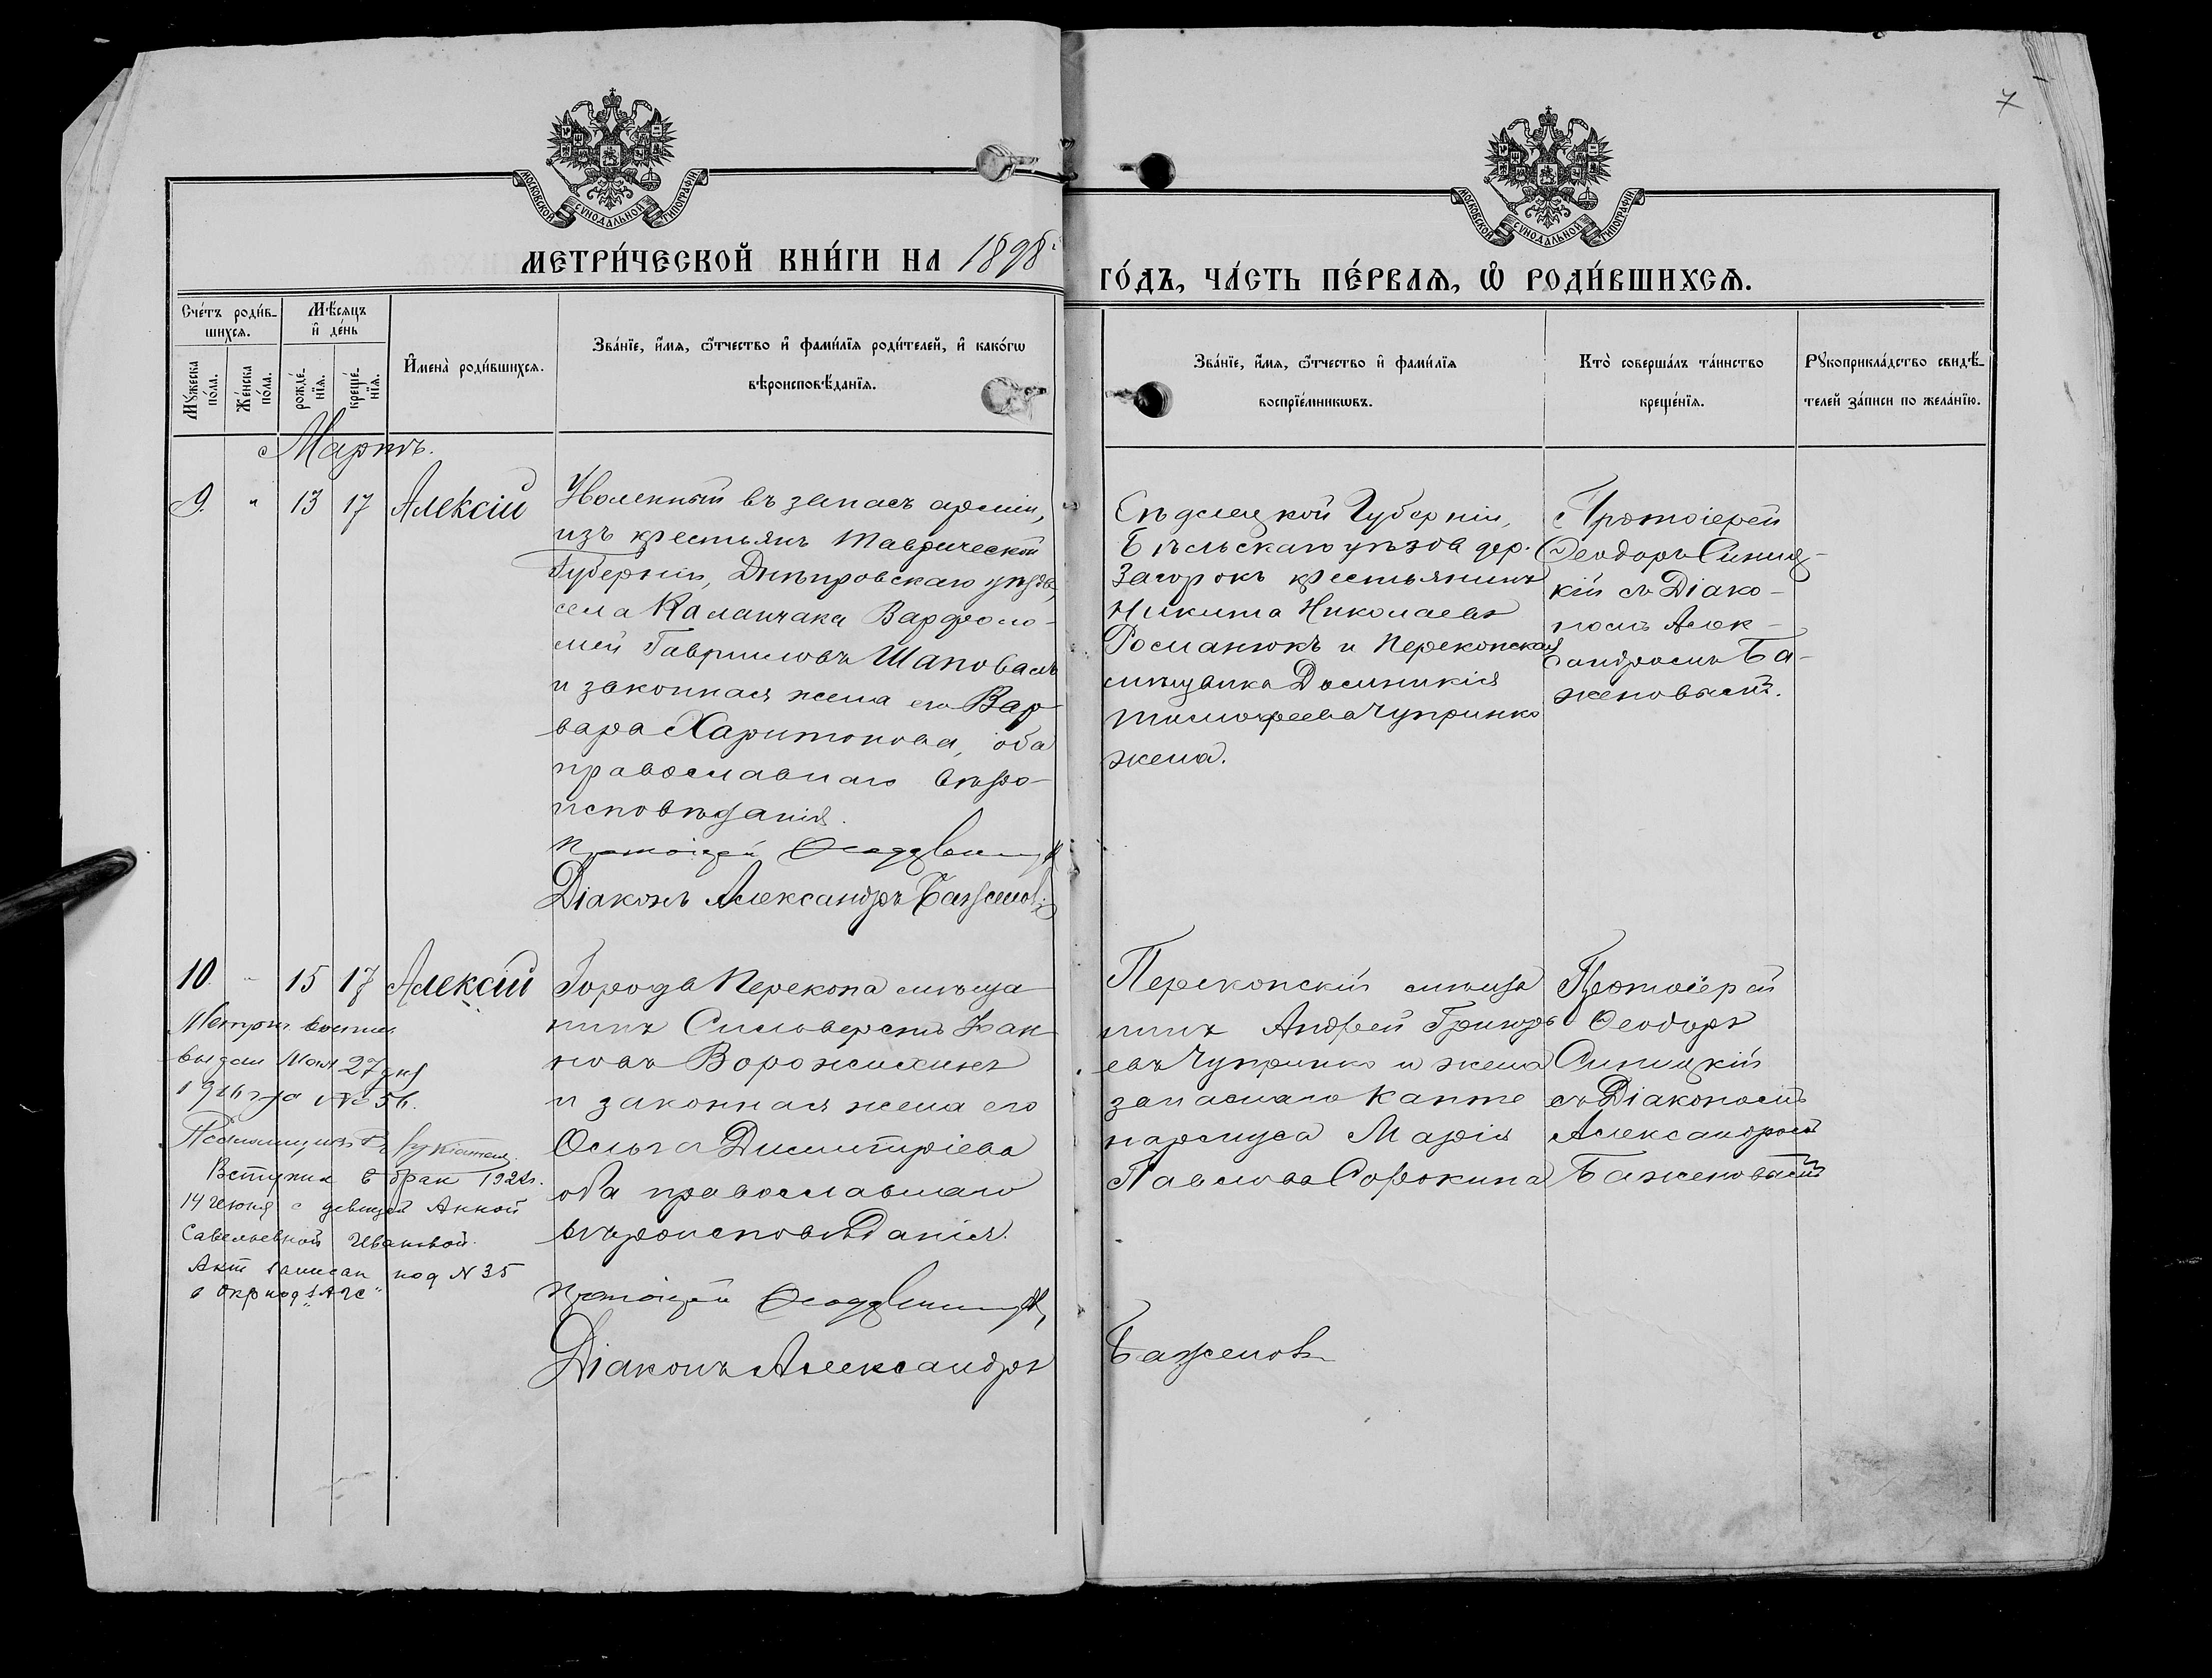 7
МОСКОВСКОЙ СУНОДАЛЬНОЙ ТИПОГРАФІИ
МОСКОВСКОЙ СУНОДАЛЬНОЙ ТИПОГРАФІИ
МЕТРИ́ЧЕСКОЙ КНИ́ГИ НА 1898
ГО́ДЪ, ЧА́СТЬ ПЕ́РВАѦ, Ѽ РОДИ́ВШИХСѦ.
Сче́тъ роди́в-
шихсѧ.
Мѣ́сѧцъ
и҆ де́нь
Мꙋ́жеска
по́ла.
Же́нска
по́ла.
рожде́-
нїѧ.
креще́-
нїѧ.
И҆мена̀ роди́вшихсѧ.
Зва́нїе, и҆́мѧ, ѻ҆́тчество и҆ фами́лїѧ роди́телей, и҆ како́гѡ
вѣроисповѣ́данїѧ.
Зва́нїе, и҆́мѧ, ѻ҆́тчество и҆ фами́лїѧ
воспрїе́мникѡвъ.
Кто̀ соверша́лъ та́инство
креще́нїѧ.
Рꙋкоприкла́дство свидѣ́-
телей за́писи по жела́нїю.
Мартъ.
9. " 13 17 Алексій
Уволенный въ запасъ арміи,
изъ крестьянъ Таврической
Губерніи, Днѣпровскаго уѣзда,
села Каланчака Варфоло-
мей Гавриловъ Шаповалъ
и законная жена его Вар-
вара Харитонова, оба
православнаго вѣро-
исповѣданія.
Протоіерей Ѳеодоръ Синицкій
Діаконъ Александръ Баженовъ
Сѣдлецкой Губерніи,
Бѣльскаго уѣзда дер.
Загорокъ крестьянинъ
Никита Николаевъ
Романюкъ и Перекопская
мѣщанка Домникія
Тимофеева Чупринко
жена.
Протоіерей
Ѳеодоръ Синиц-
кій съ Діако-
номъ Алек-
сандромъ Ба-
женовымъ.
10. " 15 17 Алексій
Города Перекопа мѣща-
нинъ Силоверстъ
новъ Ворожихинъ
и законная жена его
Ольга Димитріева
оба православнаго
вѣроисповѣданія.
Протоіерей Ѳеодоръ Синицкій
Діаконъ Александръ
Баженовъ
Перекопскій мѣща-
нинъ Андрей Григорь-
евъ Чупринко и жена
запаснаго капте-
нармуса Марія
Павлова Сорокина
Протоіерей
Ѳеодоръ
Синицкій
съ Діакономъ
Александромъ
Баженовымъ
Метрич.
выдан Мая 27 дня
1916 года № 56.
Вступил в брак 192
14 июня с девицей Анной
Савельевной Ивановой.
Акт записан под N 35
в "ЗАГС"